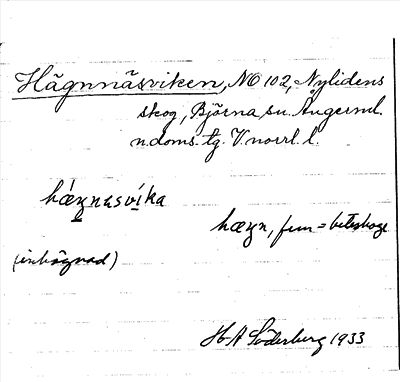 Hägnnäsviken, NO 102, Nylidens
skog, Björna sn. Ångerml.
ndoms. tg. V. norrl. l.
hægnesvíka
hægn, fem = beteshage
(inhägnad)
H A Söderberg 1933